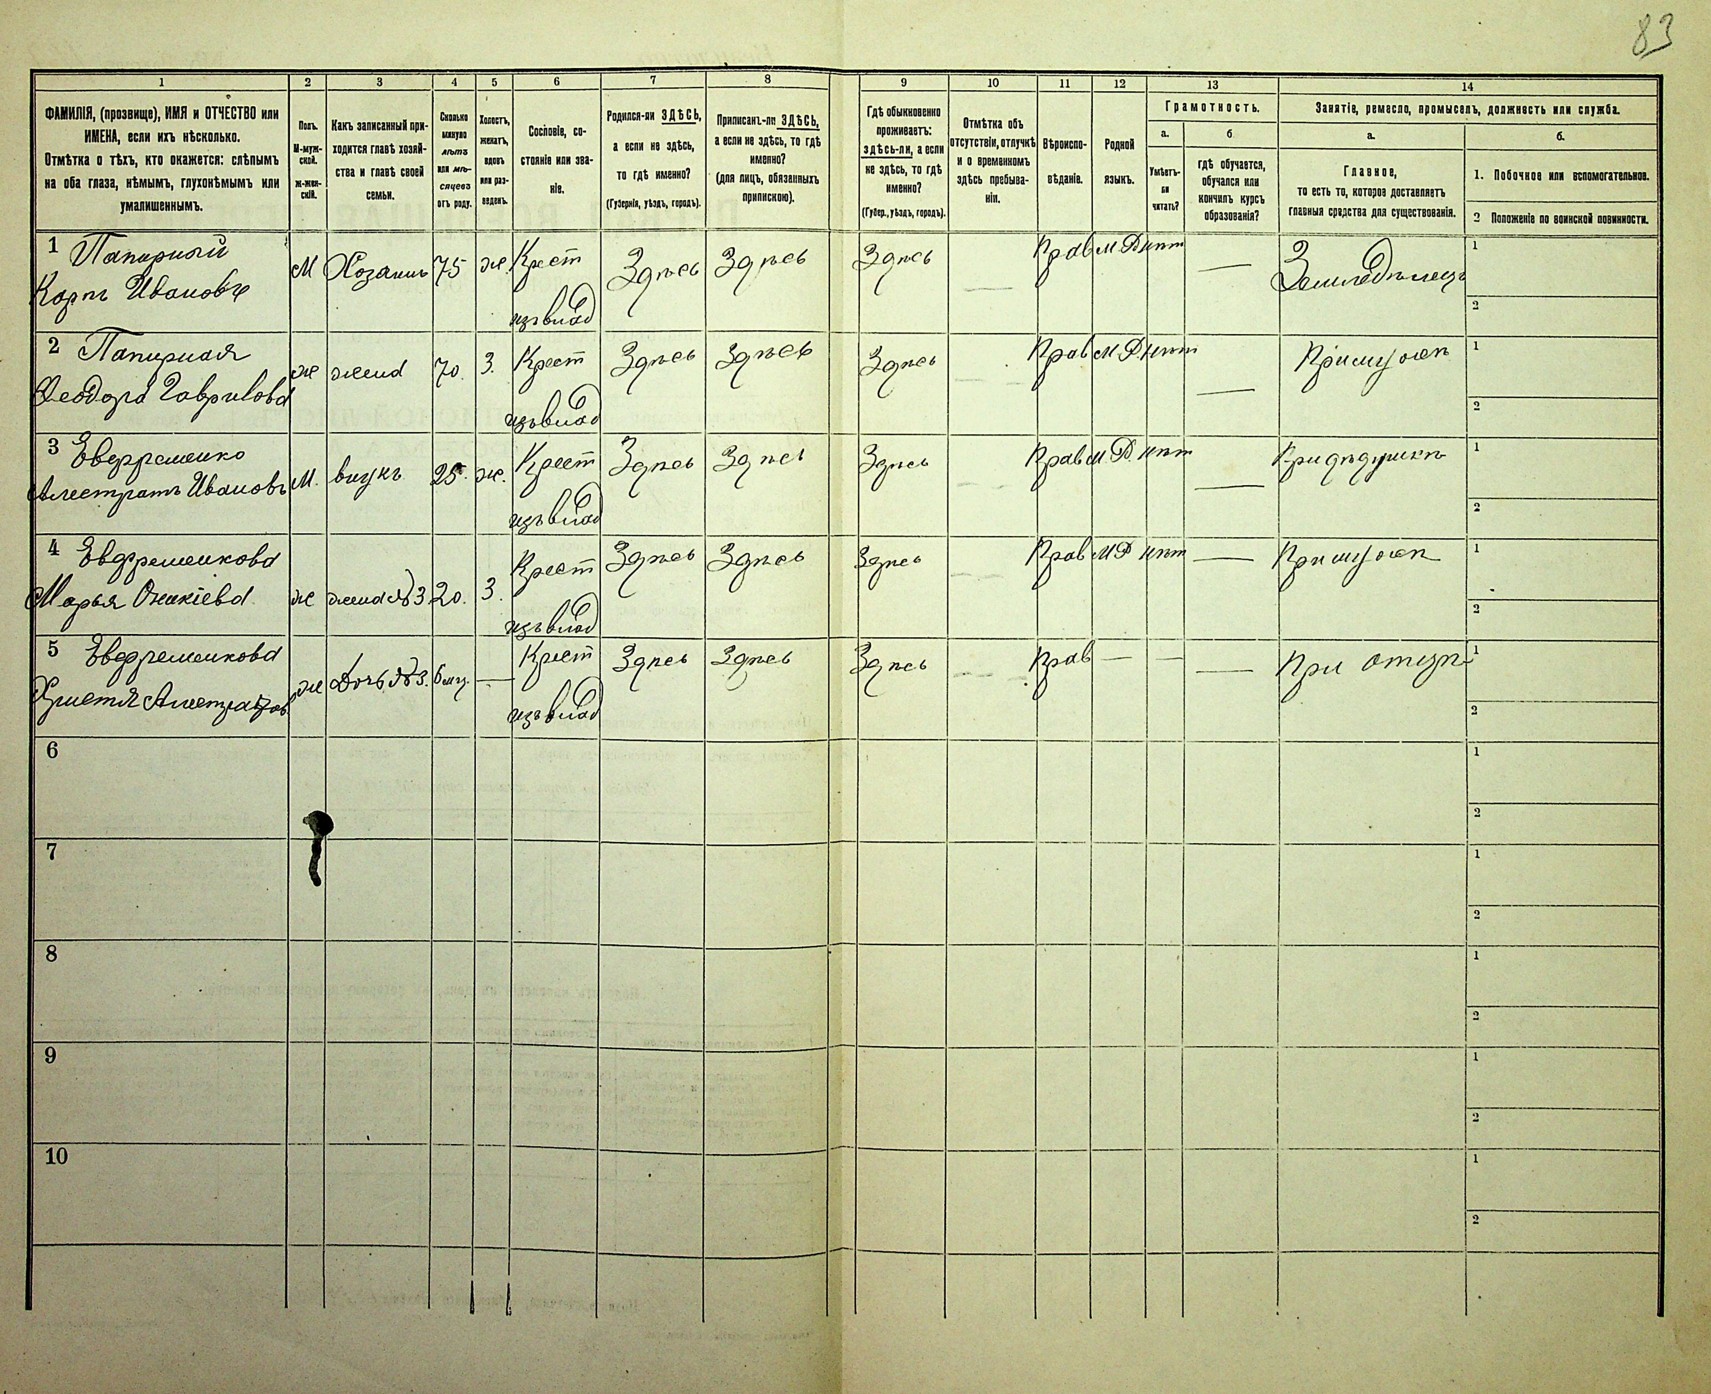 83
1 2 3 4 5 6 7 8 9 10 11 12 13 14
ФАМИЛІЯ, (прозвище), ИМЯ и ОТЧЕСТВО или
ИМЕНА, если ихъ нѣсколько.
Отмѣтка о тѣхъ, кто окажется: слѣпымъ
на оба глаза, нѣмымъ, глухонѣмымъ или
умалишеннымъ.
Полъ.
М-муж-
ской.
ж-жен-
скій.
Какъ записанный при-
ходится главѣ хозяй-
ства и главѣ своей
семьи.
Сколько
минуло
лѣтъ
или мѣ-
сяцевъ
отъ роду.
Холостъ,
женатъ,
вдовъ
или раз-
веденъ.
Сословіе, со-
стояніе или зва-
ніе.
Родился-ли ЗДѢСЬ,
а если не здѣсь,
то гдѣ именно?
(Губернія, уѣздъ, городъ).
Приписанъ-ли ЗДѢСЬ,
а если не здѣсь, то гдѣ
именно?
(для лицъ, обязанныхъ
припискою).
Гдѣ обыкновенно
проживаетъ:
здѣсь-ли, а если
не здѣсь, то гдѣ
именно?
(Губер., уѣздъ, городъ).
Отмѣтка объ
отсутствіи, отлучкѣ
и о временномъ
здѣсь пребыва-
ніи.
Вѣроиспо-
вѣданіе.
Родной
языкъ.
Грамотность.
а. б
Умѣетъ-
ли
читать?
гдѣ обучается,
обучался или
кончилъ курсъ
образованія?
Занятіе, ремесло, промыселъ, должность или служба.
а. б.
Главное,
то есть то, которое доставляетъ
главныя средства для существованія.
1. Побочное или вспомогательное.
2 Положеніе по воинской повинности.
1 Папирный М Хозяинъ 75 же. Крест Здѣсь Здѣсь Здѣсь — Прав М.Р нѣт — Земледѣлецъ 1
Карпъ Ивановъ изъ влад 2
2 Папирная же жена 70. З. Крест Здѣсь Здѣсь Здѣсь — Прав М.Р нѣт — При мужѣ 1
Феодора Гаврилова изъ влад 2
3 Евфременко М. внукъ 25. же. Крест Здѣсь Здѣсь Здѣсь — Прав М.Р. нѣт — При дѣдушкѣ 1
Алестратъ Ивановъ изъ влад 2
4 Евфременкова же жена №3 20. З. Крест Здѣсь Здѣсь Здѣсь — Прав М Р нѣт — При мужѣ 1
Марья Оникіева изъ влад 2
5 Евфременкова же Дочь №3. 6 мц. — Крест Здѣсь Здѣсь Здѣсь — Прав — — — При отцѣ 1
Христя изъ влад 2
6 1
2
7 1
2
8 1
2
9 1
2
10 1
2